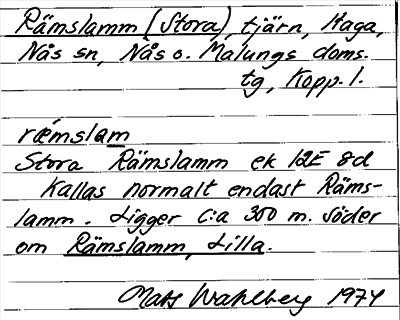 Rämslamm (Stora), tjärn, Haga,
Nås sn, Nås o. Malungs doms.
tg, Kopp. l.
rǽmslam
Stora Rämslamm ek 12E 8d
Kallas normalt endast Räms-
lamm. Ligger c:a 300 m. söder
om Rämslamm, Lilla.
Mats Wahlberg 1974